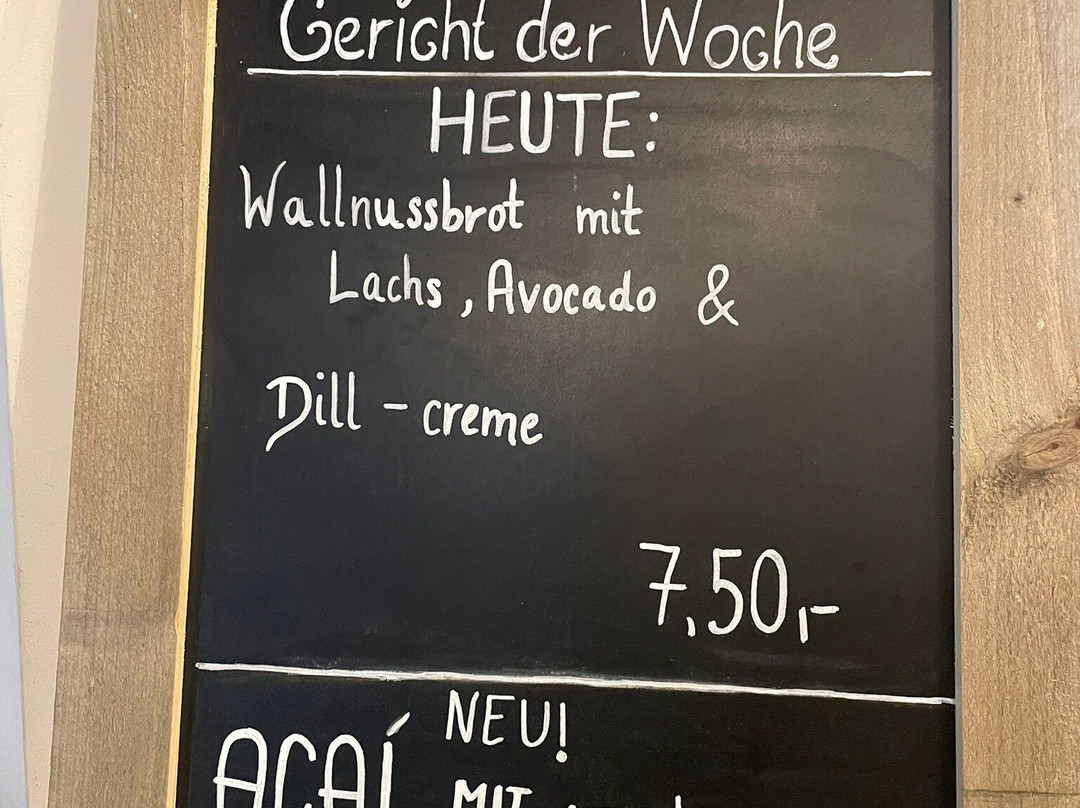 Gericht der Woche
HEUTE:
Wallnussbrot mit
Lachs, Avocado &
Dill - creme
7,50,-
NEU!
AÇAÍ MIT